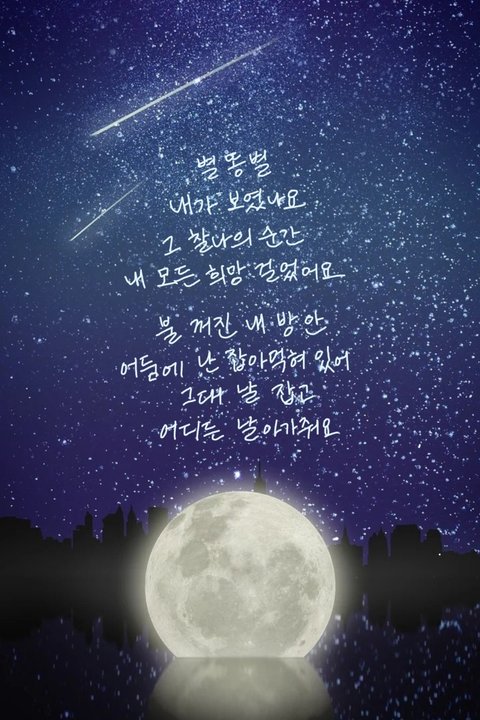 별똥별
내가 보였나요
그 찰나의 순간
내 모든 희망 걸었어요
불 꺼진 내 방 안
어둠에 난 잡아먹혀 있어
그대 날 잡고
어디든 날아가줘요